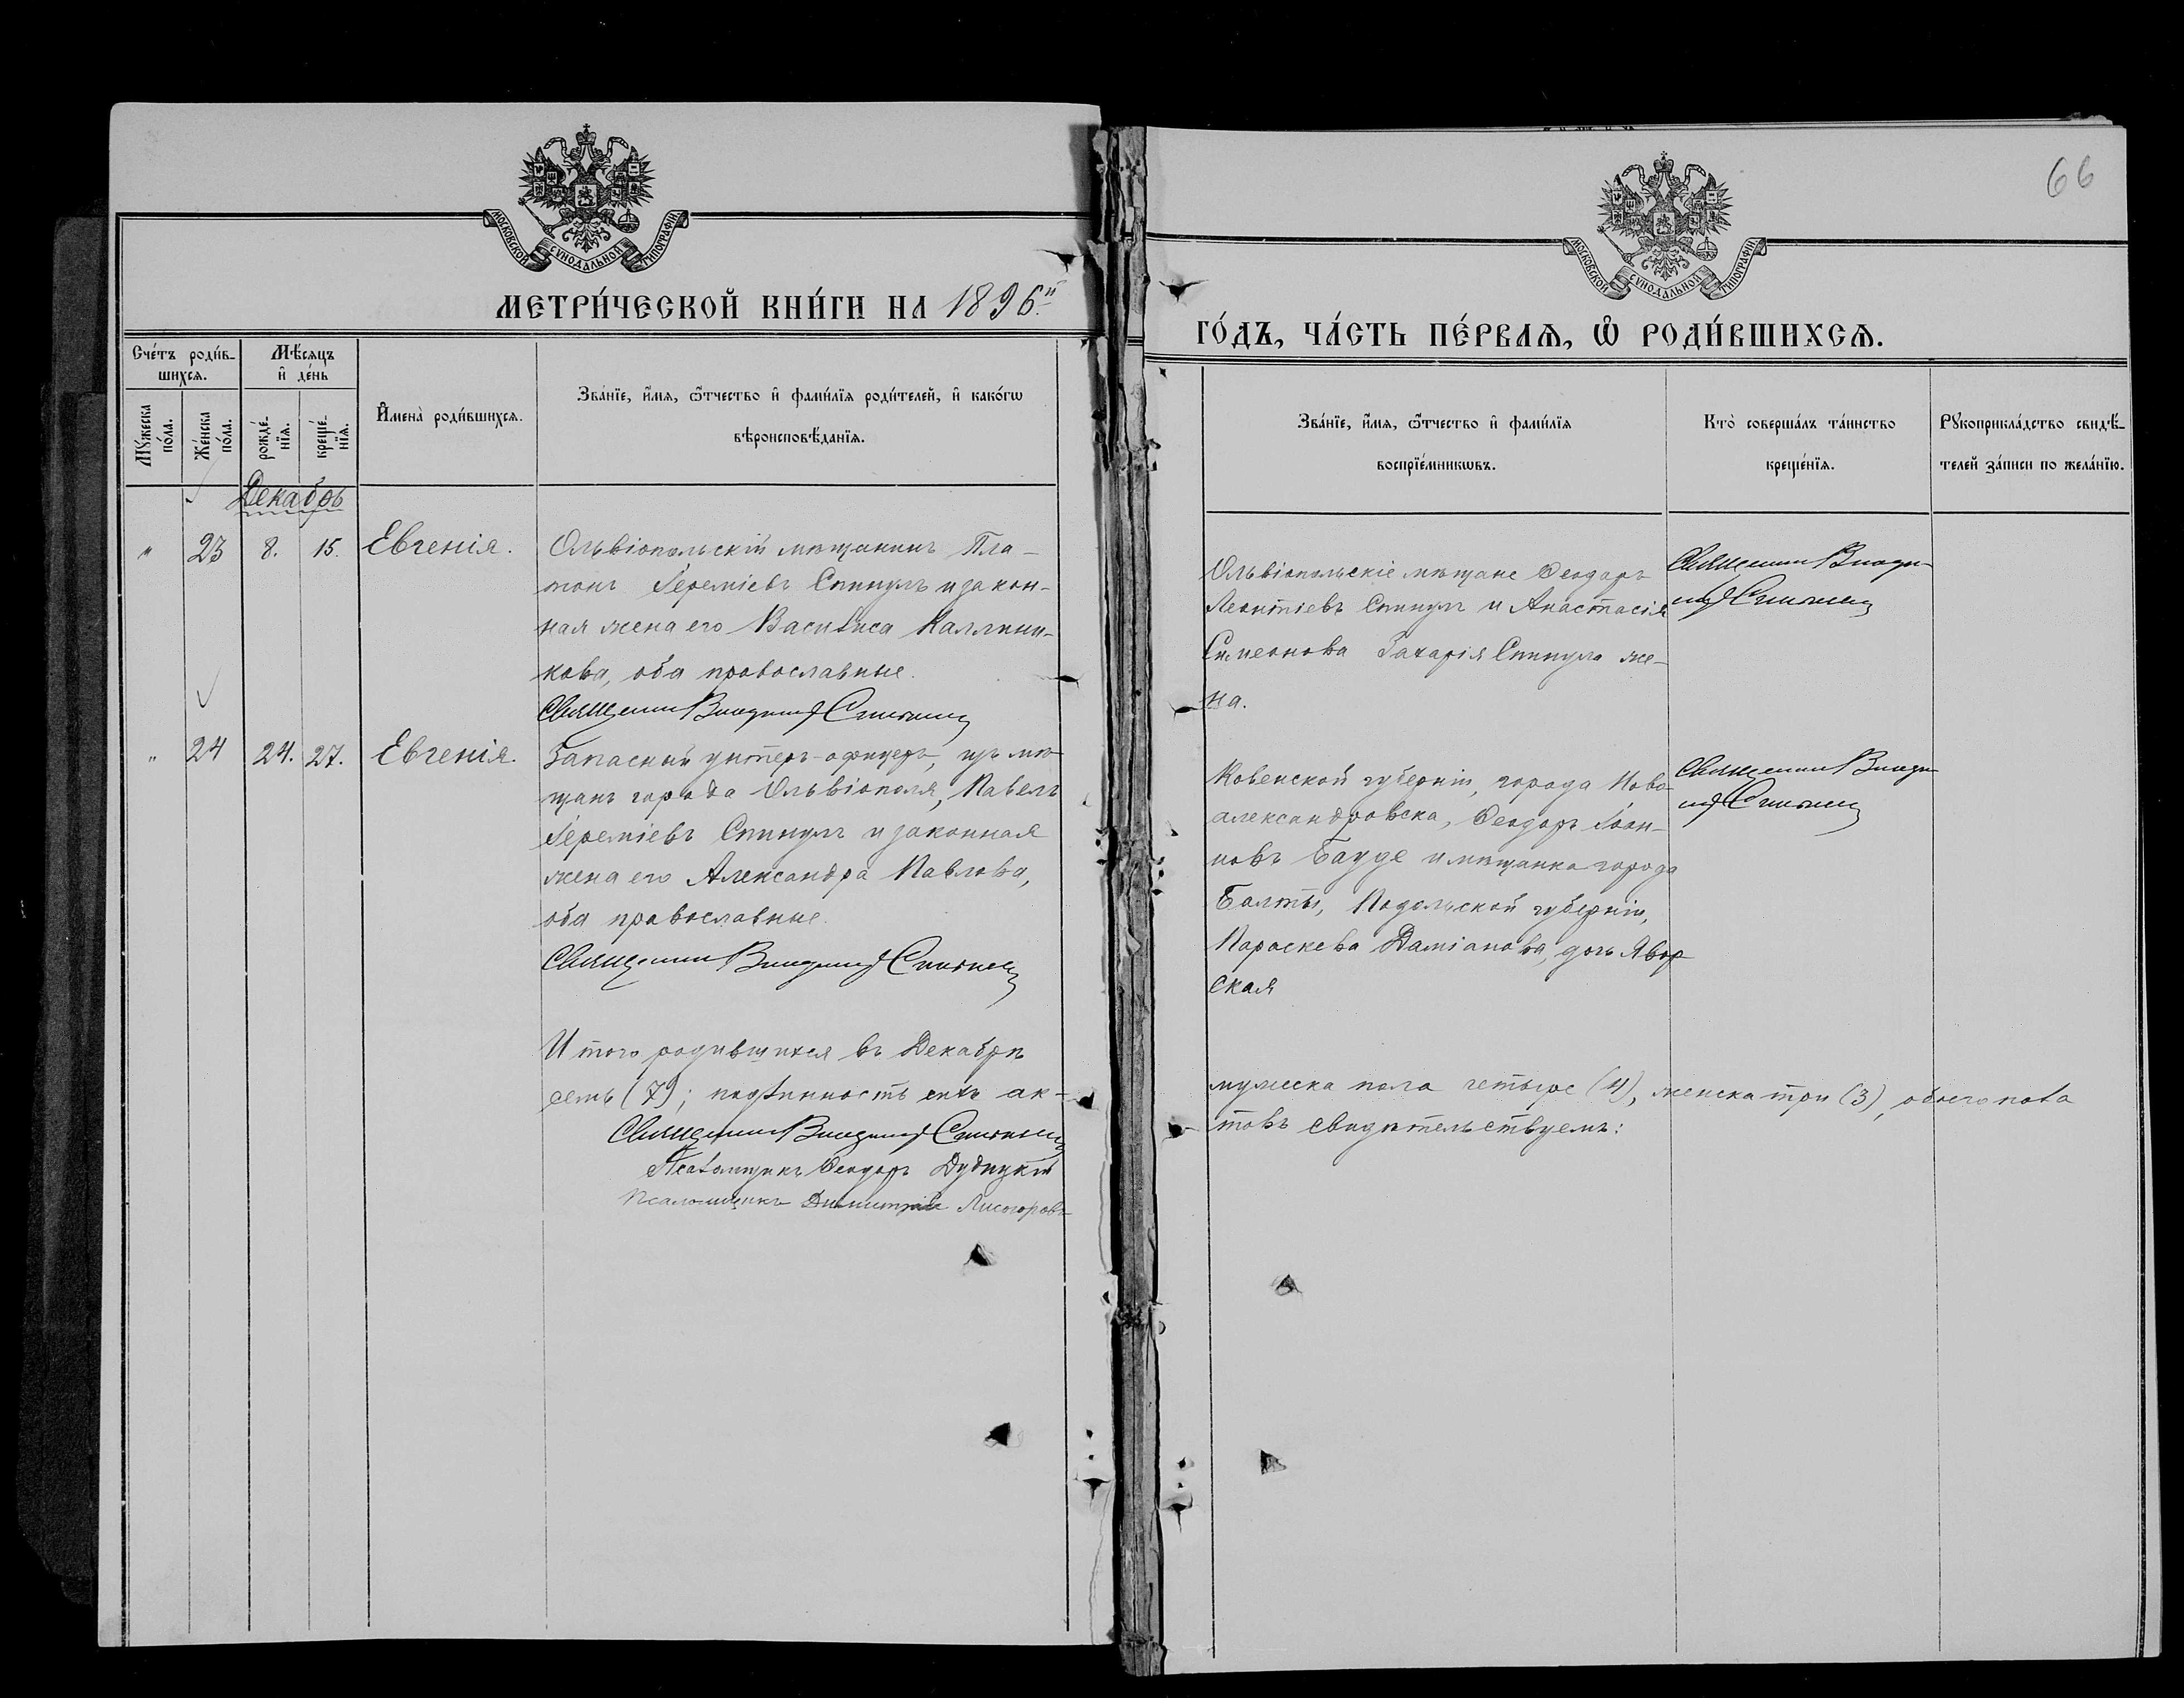 66
МОСКОВСКОЙ СѴНОДАЛЬНОЙ ТИПОГРАФІИ
МОСКОВСКОЙ СѴНОДАЛЬНОЙ ТИПОГРАФІИ
МЕТРИ́ЧЕСКОЙ КНИ́ГИ НА 1896й
ГО́ДЪ, ЧА́СТЬ ПЕ́РВАѦ, Ѡ҆ РОДИ́ВШИХСѦ.
Сче́тъ роди́в-
шихсѧ.
Мꙋ́жеска по́ла.
Же́нска по́ла.
Мѣ́сѧцъ
и҆ де́нь
рожде́-
нїѧ.
креще́-
нїѧ.
И҆мена̀ роди́вшихсѧ.
Зва́нїе, и҆́мѧ, ѻ҆́тчество и҆ фами́лїѧ роди́телей, и҆ како́гѡ
вѣроисповѣ́данїѧ.
Зва́нїе, и҆́мѧ, ѻ҆́тчество и҆ фами́лїѧ
воспрїе́мникѡвъ.
Кто̀ соверша́лъ та́инство
креще́нїѧ.
Рꙋкоприкла́дство свидѣ́-
телей за́писи по жела́нїю.
Декабрь
" 23 8. 15. Евгенія.
Ольвіопольскій мѣщанинъ Пла-
тонъ Іереміевъ Спинулъ и закон-
ная жена его Василиса Каллини-
кова, оба православные.
Священникъ Владимір
Ольвіопольскіе мѣщане Ѳеодоръ
Леонтіевъ Спинулъ и Анастасія
Симеонова Захарія Спинула же-
на.
Священникъ Влади-
мір
" 24 24. 27. Евгенія.
Запасный унтеръ-офицеръ, изъ мѣ-
щанъ города Ольвіополя, Павелъ
Іереміевъ Спинулъ и законная
жена его Александра Павлова,
оба православные.
Священникъ Владимір
Ковенской губерніи, города Ново-
александровска, Ѳеодоръ Іоан-
новъ Бауде и мѣщанка города
Балты, Подольской губерніи,
Параскева Даміанова, дочь Явор-
ская
Священникъ Влади-
мір
Итого родившихся въ Декабрѣ
мужеска пола четыре (4), женска три (3), обоего пола
семь (7); подлинность сихъ ак-
товъ свидѣтельствуемъ:
Священникъ Владимір
Псаломщикъ Ѳеодоръ Дудицкій
Псаломщикъ Димитрій Лисогоровъ